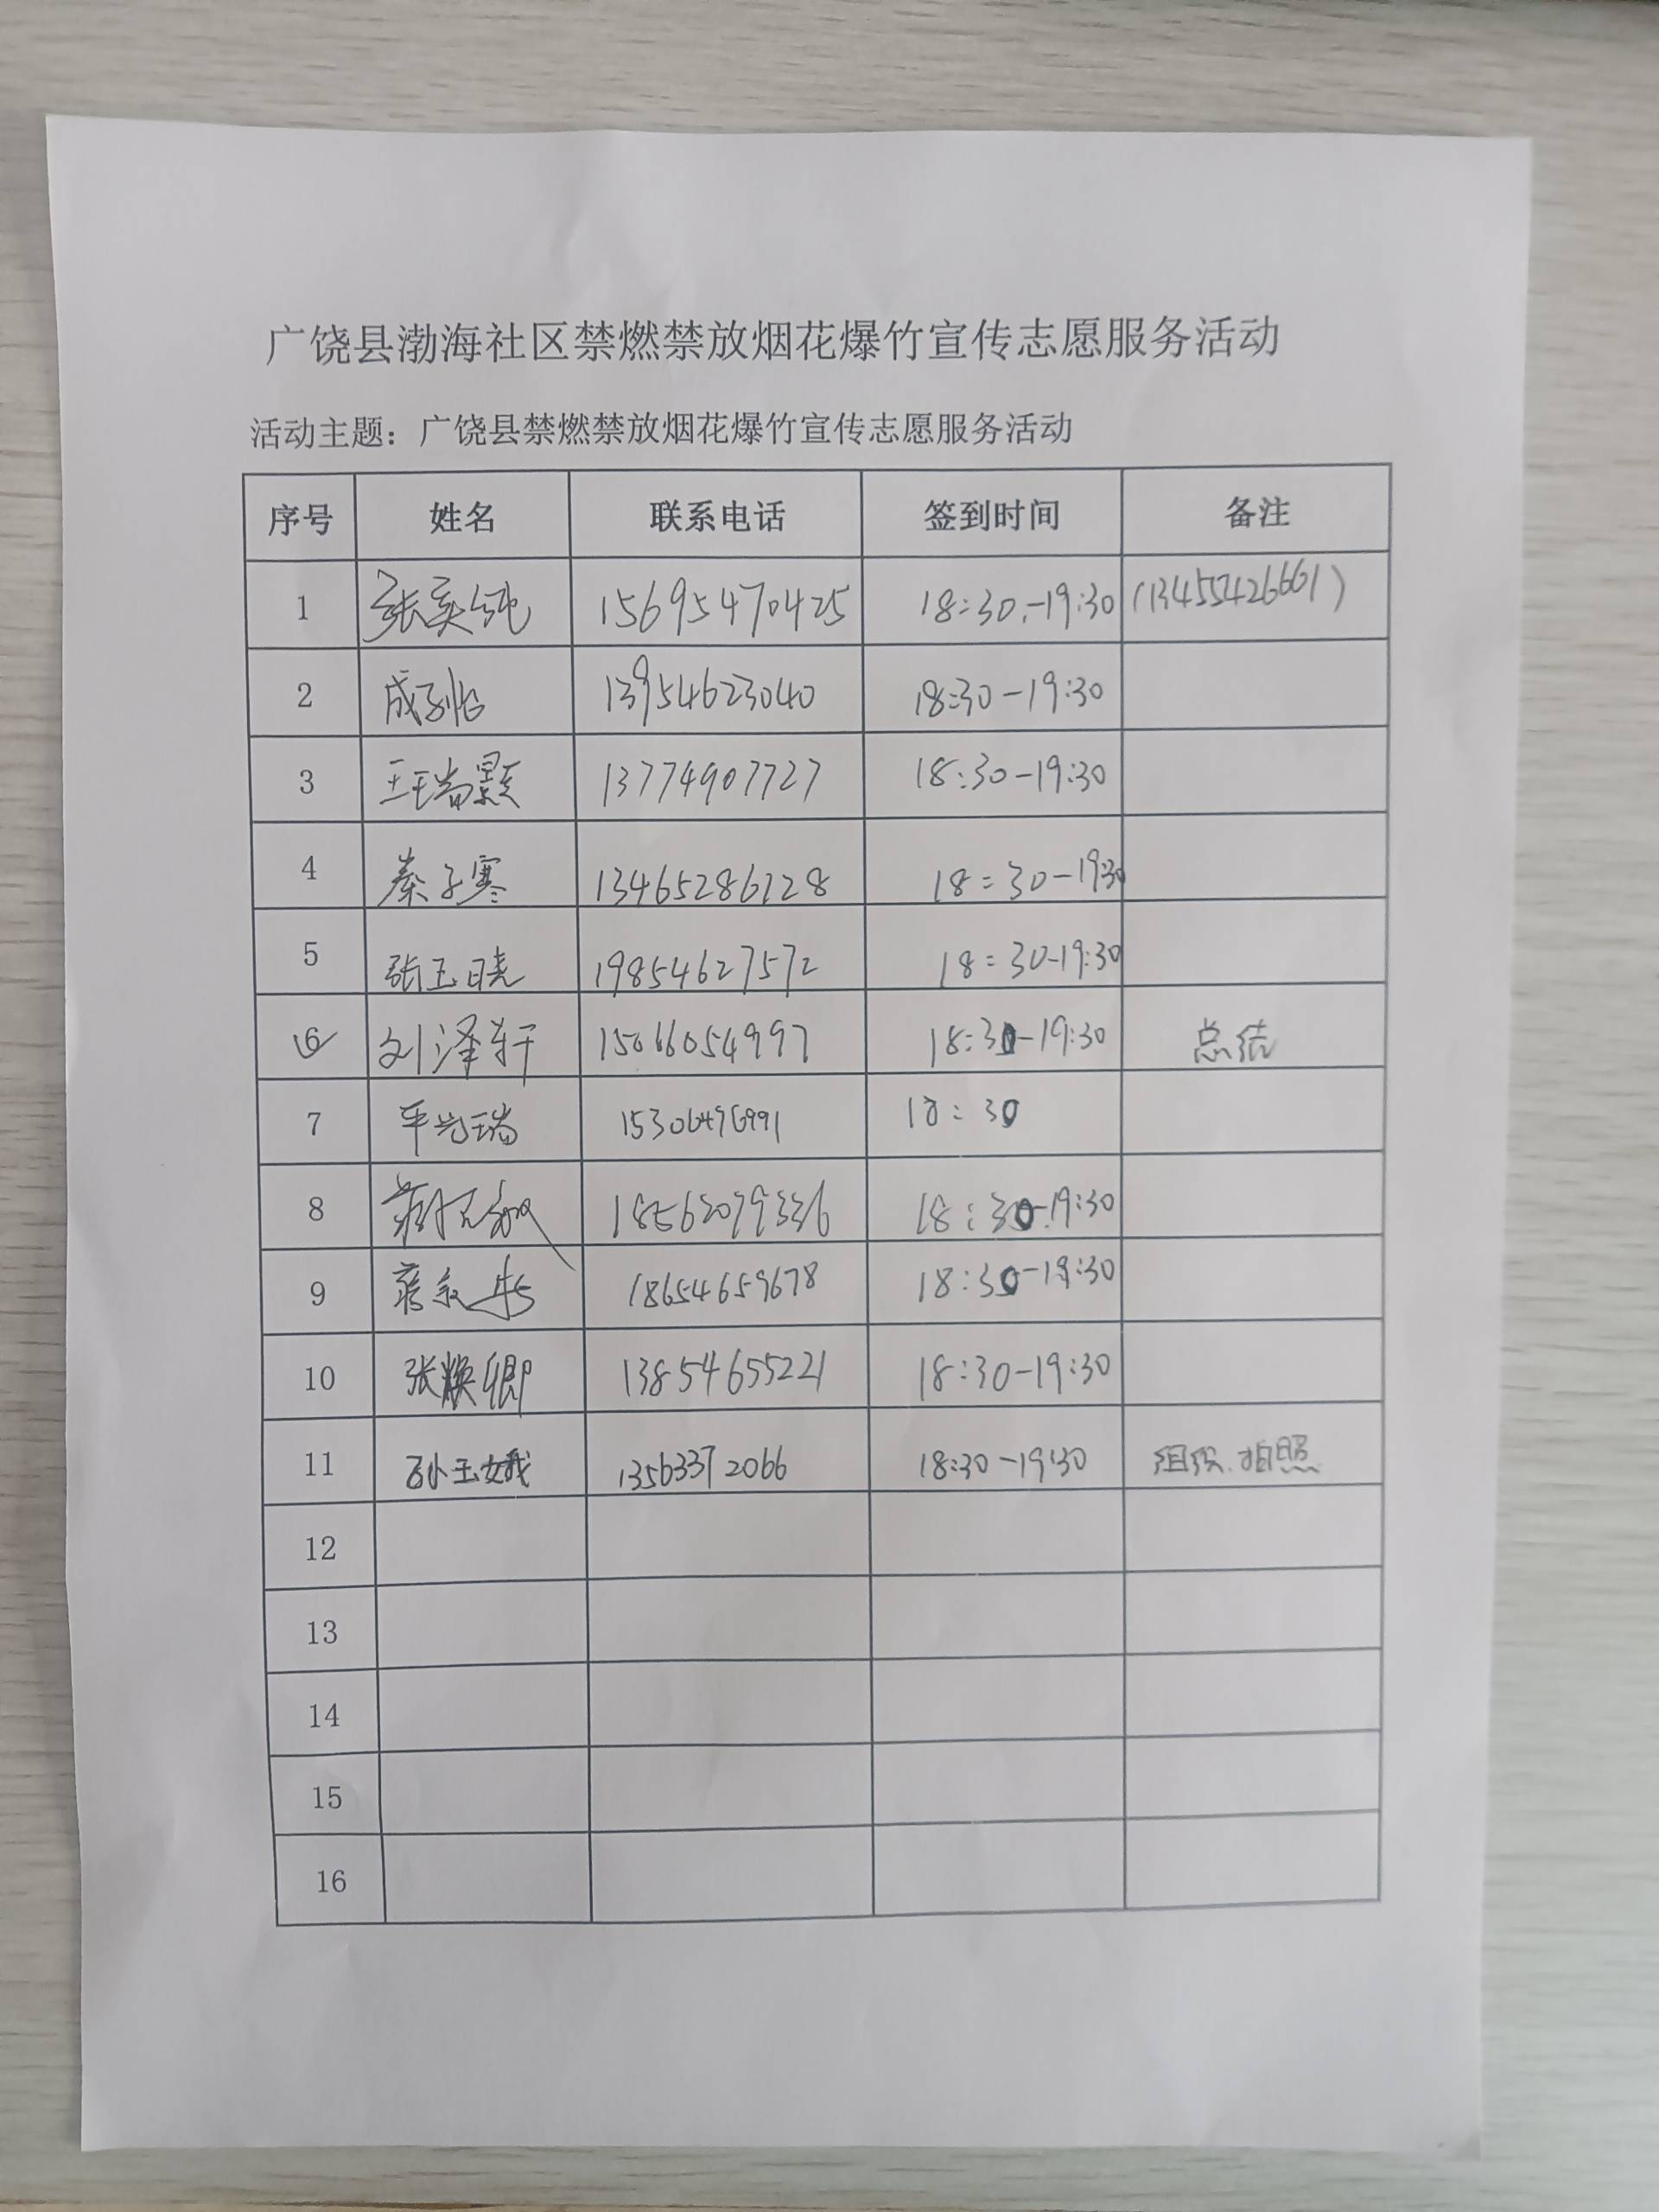 广饶县渤海社区禁燃禁放烟花爆竹宣传志愿服务活动
活动主题：广饶县禁燃禁放烟花爆竹宣传志愿服务活动
序号 姓名 联系电话 签到时间 备注
1 张奕纯 15695470425 18:30-19:30 (13455426661)
2 成子怡 13954623040 18:30-19:30
3 王瑞景 13774907727 18:30-19:30
4 秦子寒 13465286728 18:30-19:30
5 张玉晓 19854627572 18:30-19:30
6 刘泽轩 15066054997 18:30-19:30 总结
7 瑞 18:30
8 18562079336 18:30-19:30
9 蒋 18654659678 18:30-19:30
10 张焕卿 13854655221 18:30-19:30
11 孙玉娥 13563372066 18:30-19:30 组织.拍照
12
13
14
15
16